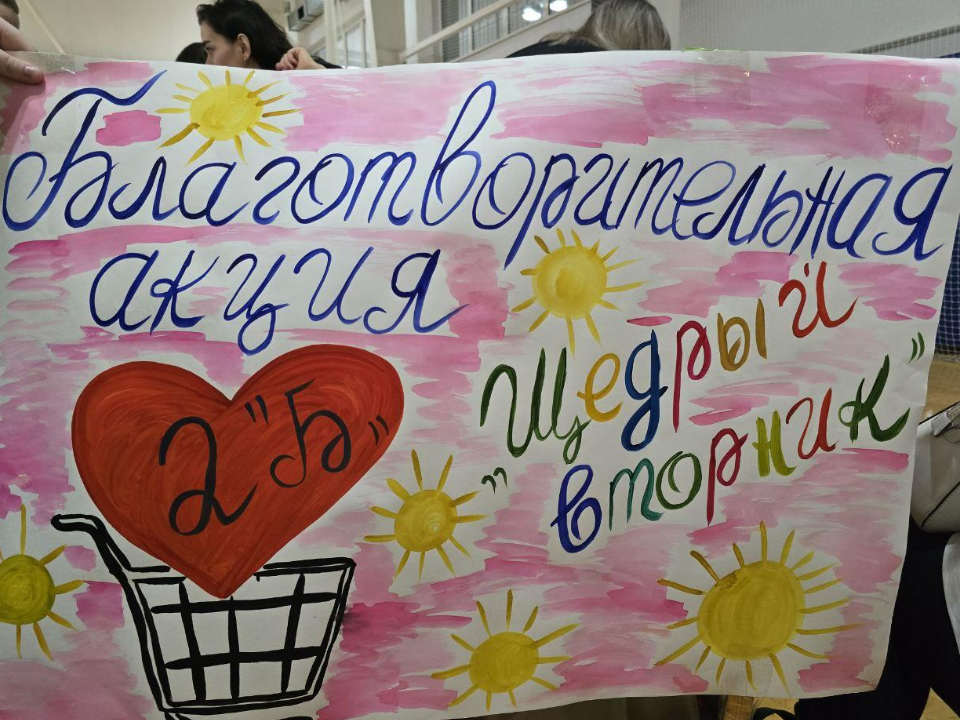 Благотворительная
акция
"Щедрый
вторник"
2 "Б"